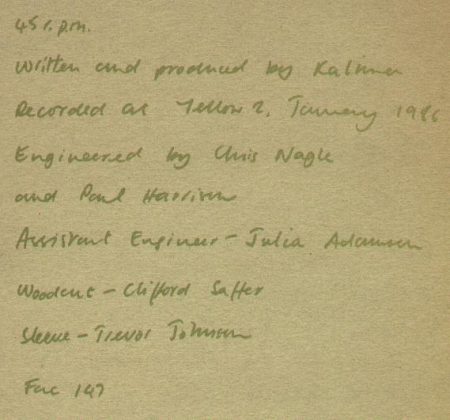 45 r.p.m.
Written and produced by Kalima
Recorded at Yellow 2, January 1986
Engineered by Chris Nagle
and Paul Harrison
Assistant Engineer - Julia Adamson
Woodcut - Clifford Saffer
Sleeve - Trevor Johnson
Fac 147